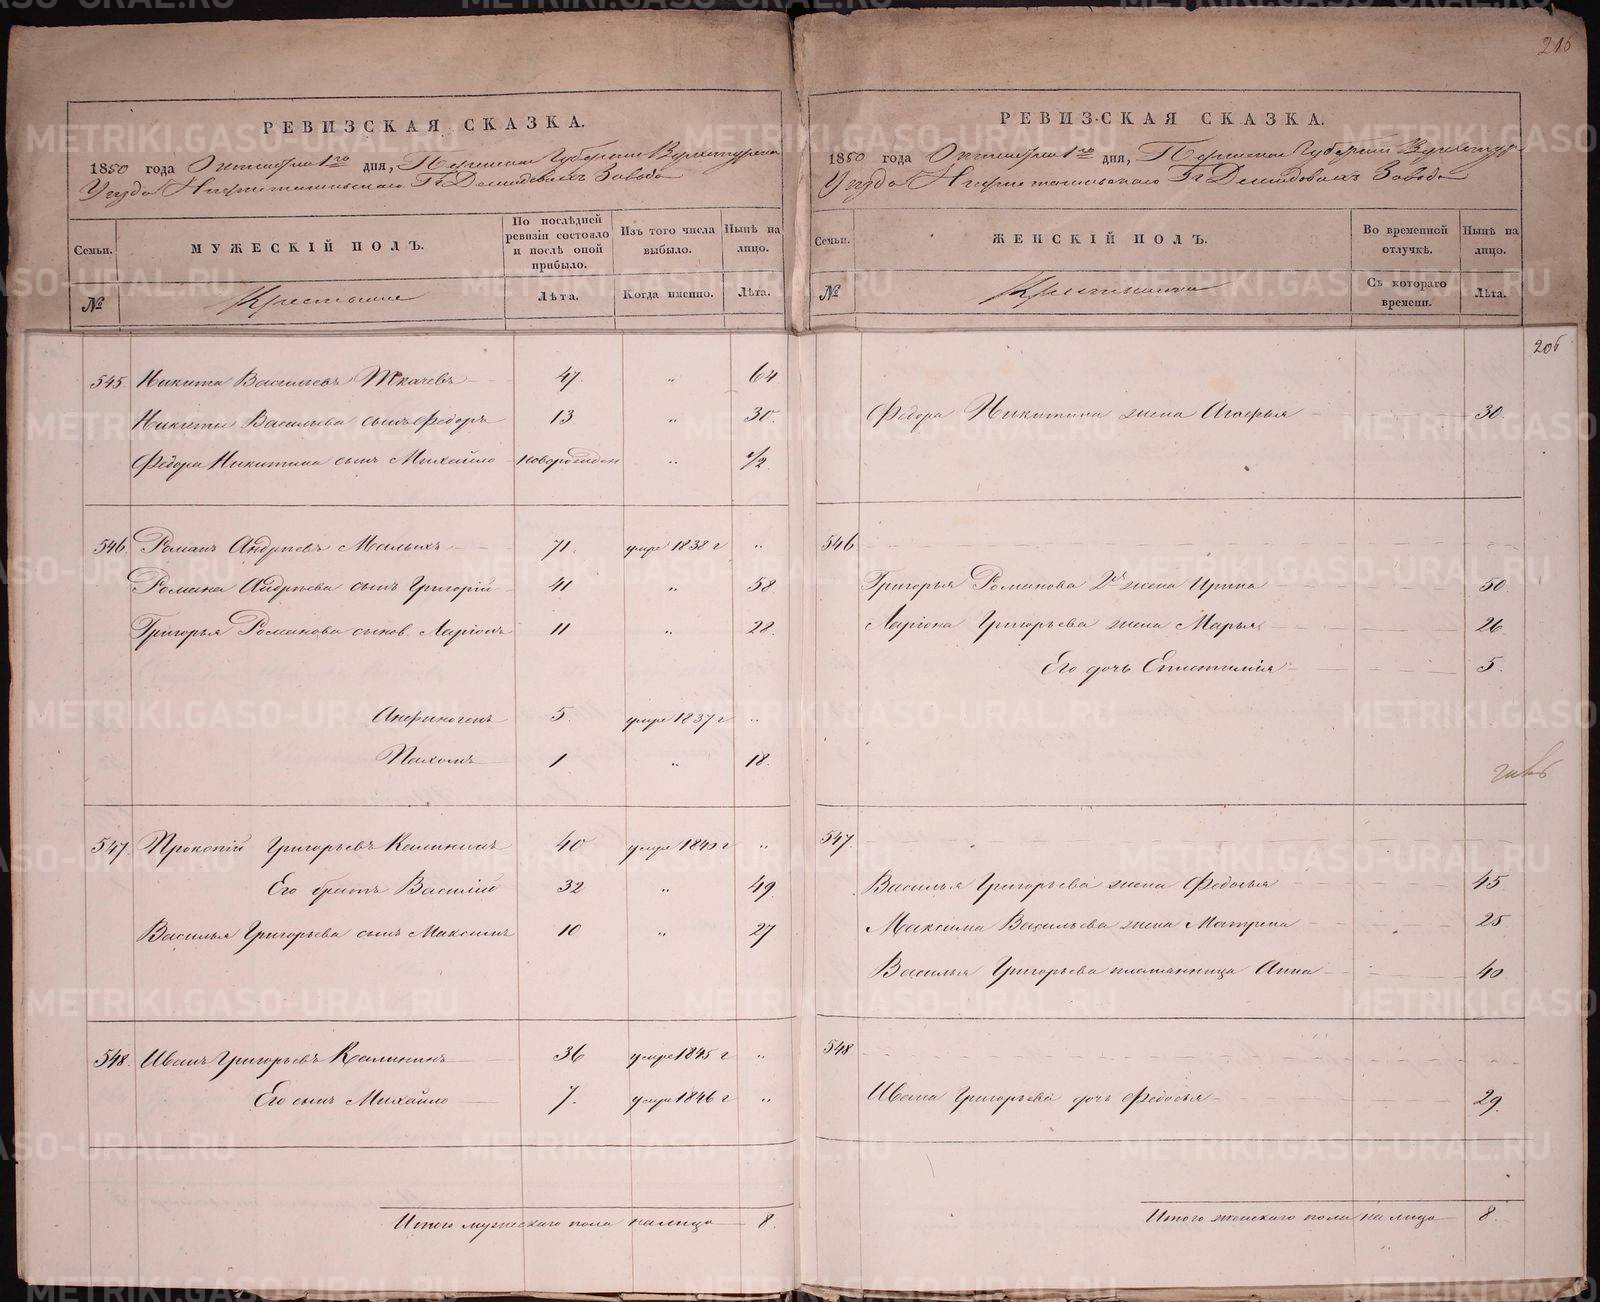 216
РЕВИЗСКАЯ СКАЗКА.
1850 года Октября 1го дня, Пермской Губернии Верхотурскаго
Уезда Нижнетагильскаго Гг Демидовыхъ Завода
Семьи. МУЖЕСКІЙ ПОЛЪ. По послѣдней ревизіи состояло и послѣ оной прибыло. Изъ того числа выбыло. Нынѣ на лицо.
№ Крестьяне Лѣта. Когда именно. Лѣта.
545 Никита Васильевъ Ткачевъ 47 „ 64
Никиты Васильева сынъ Федоръ 13 „ 30
Федора Никитина сынъ Михайло новорожден „ 1/2
546 Романъ Андреевъ Малыхъ 71 умре 1838 г „
Романа Андреева сынъ Григорій 41 „ 58
Григорья Романова сынов. Ларіонъ 11 „ 28
Анфиногенъ 5 умре 1837 г „
Пахомъ 1 „ 18
547 Прокопій Григорьевъ Калининъ 40 умре 1840 г „
Его братъ Василій 32 „ 49
Василья Григорьева сынъ Максимъ 10 „ 27
548 Иванъ Григорьевъ Калининъ 36 умре 1845 г „
Его сынъ Михайло 7 умре 1846 г „
Итого мужескаго пола на лицо 8
РЕВИЗСКАЯ СКАЗКА.
1850 года Октября 1го дня, Пермской Губерніи Верхотур
Уезда Нижнетагильскаго Гг Демидовыхъ Завода
Семьи. ЖЕНСКІЙ ПОЛЪ. Во временной отлучкѣ. Нынѣ на лицо.
№ Крестьянки Съ котораго времени. Лѣта.
206
Федора Никитина жена Агафья 30
546
Григорья Романова 2я жена Ирина 50
Ларіона Григорьева жена Марья 26
Его дочь Епистимія 5
547
Василья Григорьева жена Федосья 45
Максима Васильева жена Матрена 25
Василья Григорьева племянница Анна 40
548
Ивана Григорьева дочь Федосья 29
Итого женскаго пола на лицо 8
METRIKI.GASO-URAL.RU